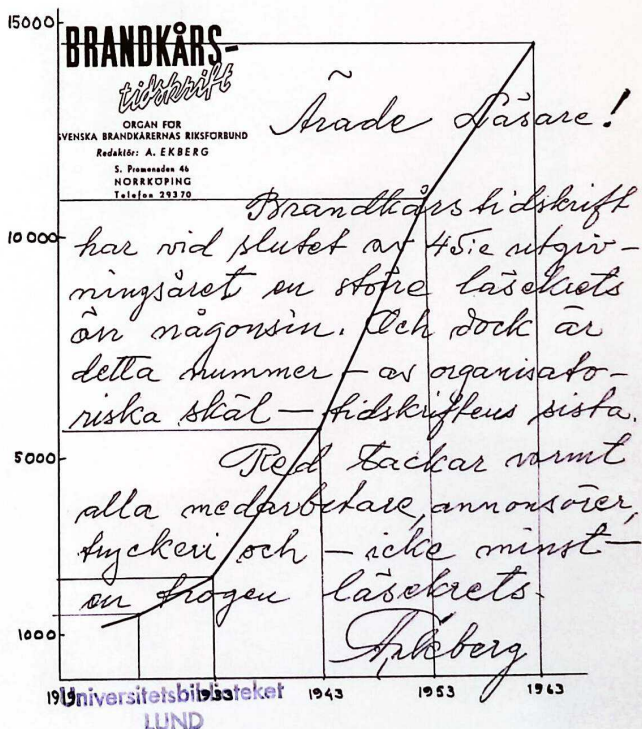 15000
BRANDKÅRS-
tidskrift
ORGAN FÖR
SVENSKA BRANDKÅRERNAS RIKSFÖRBUND
Redaktör: A. EKBERG
S. Promenaden 46
NORRKÖPING
Telefon 29370
Ärade Läsare!
Brandkårstidskrift
10000
har vid slutet av 45:e utgiv-
ningsåret en större läsekrets
än någonsin. Och dock är
detta nummer – av organisato-
riska skäl – tidskriftens sista.
5000
Red tackar varmt
alla medarbetare, annonsörer,
tryckeri och – icke minst –
en trogen läsekrets.
1000
AEkberg
1919 1933 1943 1953 1963
Universitetsbiblioteket
LUND